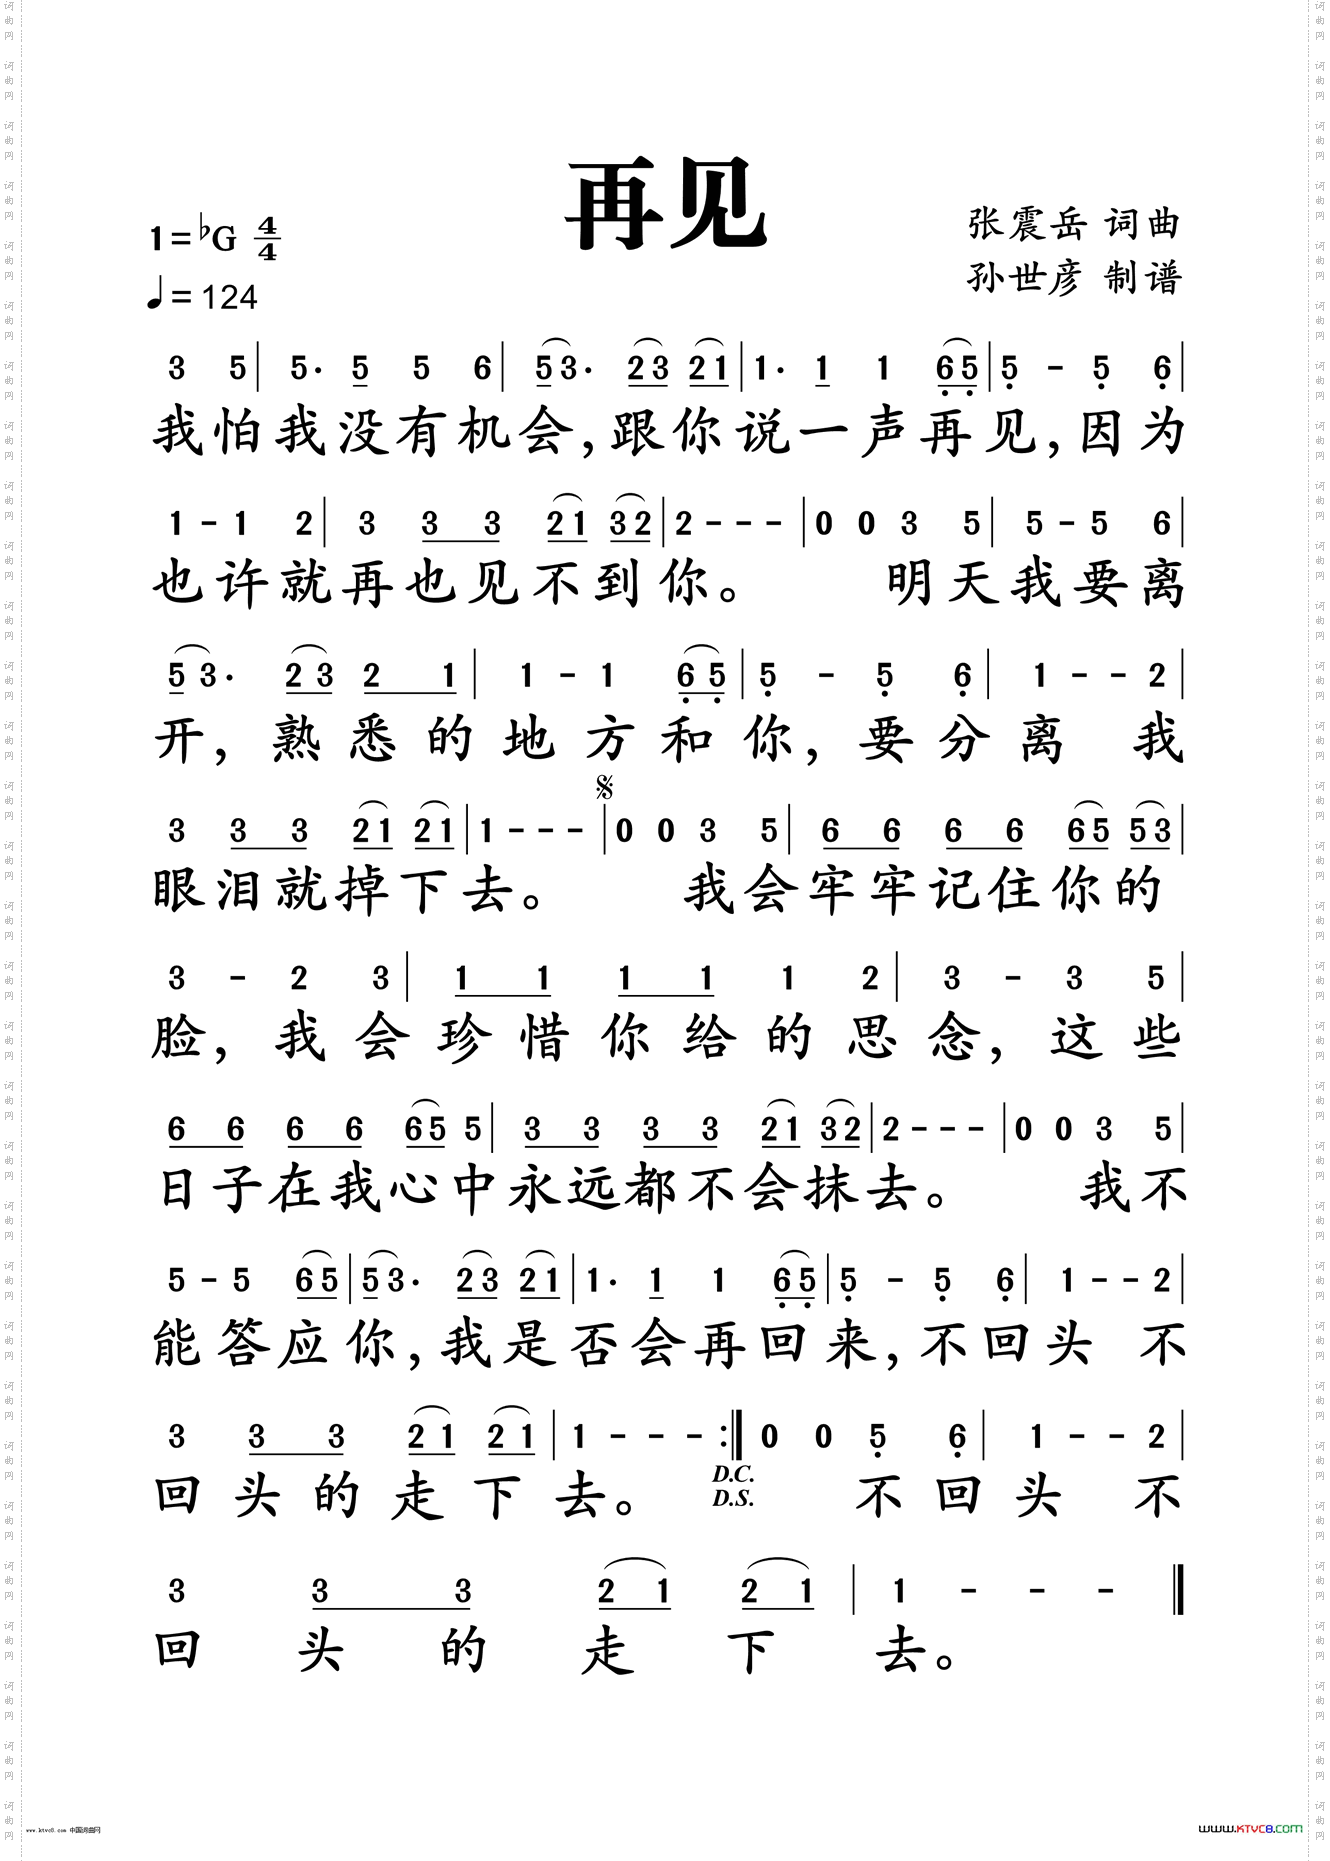 再见
1=♭G 4/4
♩= 124
张震岳 词曲
孙世彦 制谱
3 5 | 5. 5 5 6 | 5 3. 2 3 2 1 | 1. 1 1 6 5 | 5 - 5 6 |
我怕我没有机会,跟你说一声再见,因为
1 - 1 2 | 3 3 3 2 1 3 2 | 2 - - - | 0 0 3 5 | 5 - 5 6 |
也许就再也见不到你。 明天我要离
5 3. 2 3 2 1 | 1 - 1 6 5 | 5 - 5 6 | 1 - - 2 |
开,熟悉的地方和你,要分离 我
𝄋
3 3 3 2 1 2 1 | 1 - - - | 0 0 3 5 | 6 6 6 6 6 5 5 3 |
眼泪就掉下去。 我会牢牢记住你的
3 - 2 3 | 1 1 1 1 1 2 | 3 - 3 5 |
脸,我会珍惜你给的思念,这些
6 6 6 6 6 5 5 | 3 3 3 3 2 1 3 2 | 2 - - - | 0 0 3 5 |
日子在我心中永远都不会抹去。 我不
5 - 5 6 5 | 5 3. 2 3 2 1 | 1. 1 1 6 5 | 5 - 5 6 | 1 - - 2 |
能答应你,我是否会再回来,不回头 不
3 3 3 2 1 2 1 | 1 - - - :‖ 0 0 5 6 | 1 - - 2 |
D.C.
D.S.
回头的走下去。 不回头 不
3 3 3 2 1 2 1 | 1 - - - ‖
回头的走下去。
www.ktvc8.com 中国词曲网
WWW.KTVC8.COM
词曲网